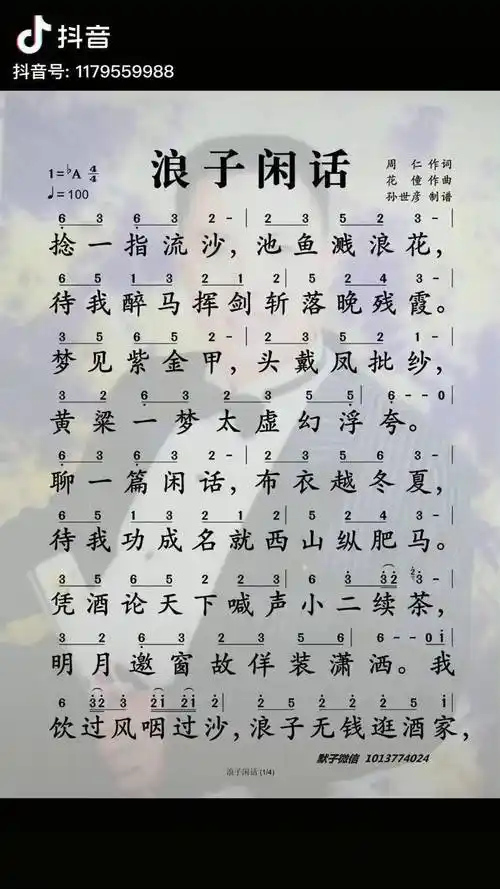 抖音
抖音号: 1179559988
浪子闲话
1=♭A 4/4
♩=100
周 仁 作词
花 僮 作曲
孙世彦 制谱
6 3 6 3 2 - | 2 3 5 2 3 - |
捻一指流沙，池鱼溅浪花，
6 5 1 3 2 1 2 | 5 2 4 3 - |
待我醉马挥剑斩落晚残霞。
3 5 6 5 2 - | 2 3 5 5 2 1 - |
梦见紫金甲，头戴凤批纱，
3 2 6 3 2 3 5 5 | 6 - - 0 |
黄粱一梦太虚幻浮夸。
6 3 6 3 2 - | 2 3 5 6 3 - |
聊一篇闲话，布衣越冬夏，
6 5 1 3 2 1 2 | 5 2 4 3 - |
待我功成名就西山纵肥马。
3 5 6 5 2 2 3 | 6 3 32 3 - |
凭酒论天下喊声小二续茶，
3 2 6 2 3 5 6 | 6 - - 0 i |
明月邀窗故佯装潇洒。我
6 32 3 21 21 2 | 2 5 2 2 5 i |
饮过风咽过沙，浪子无钱逛酒家，
默子微信 1013774024
浪子闲话 (1/4)